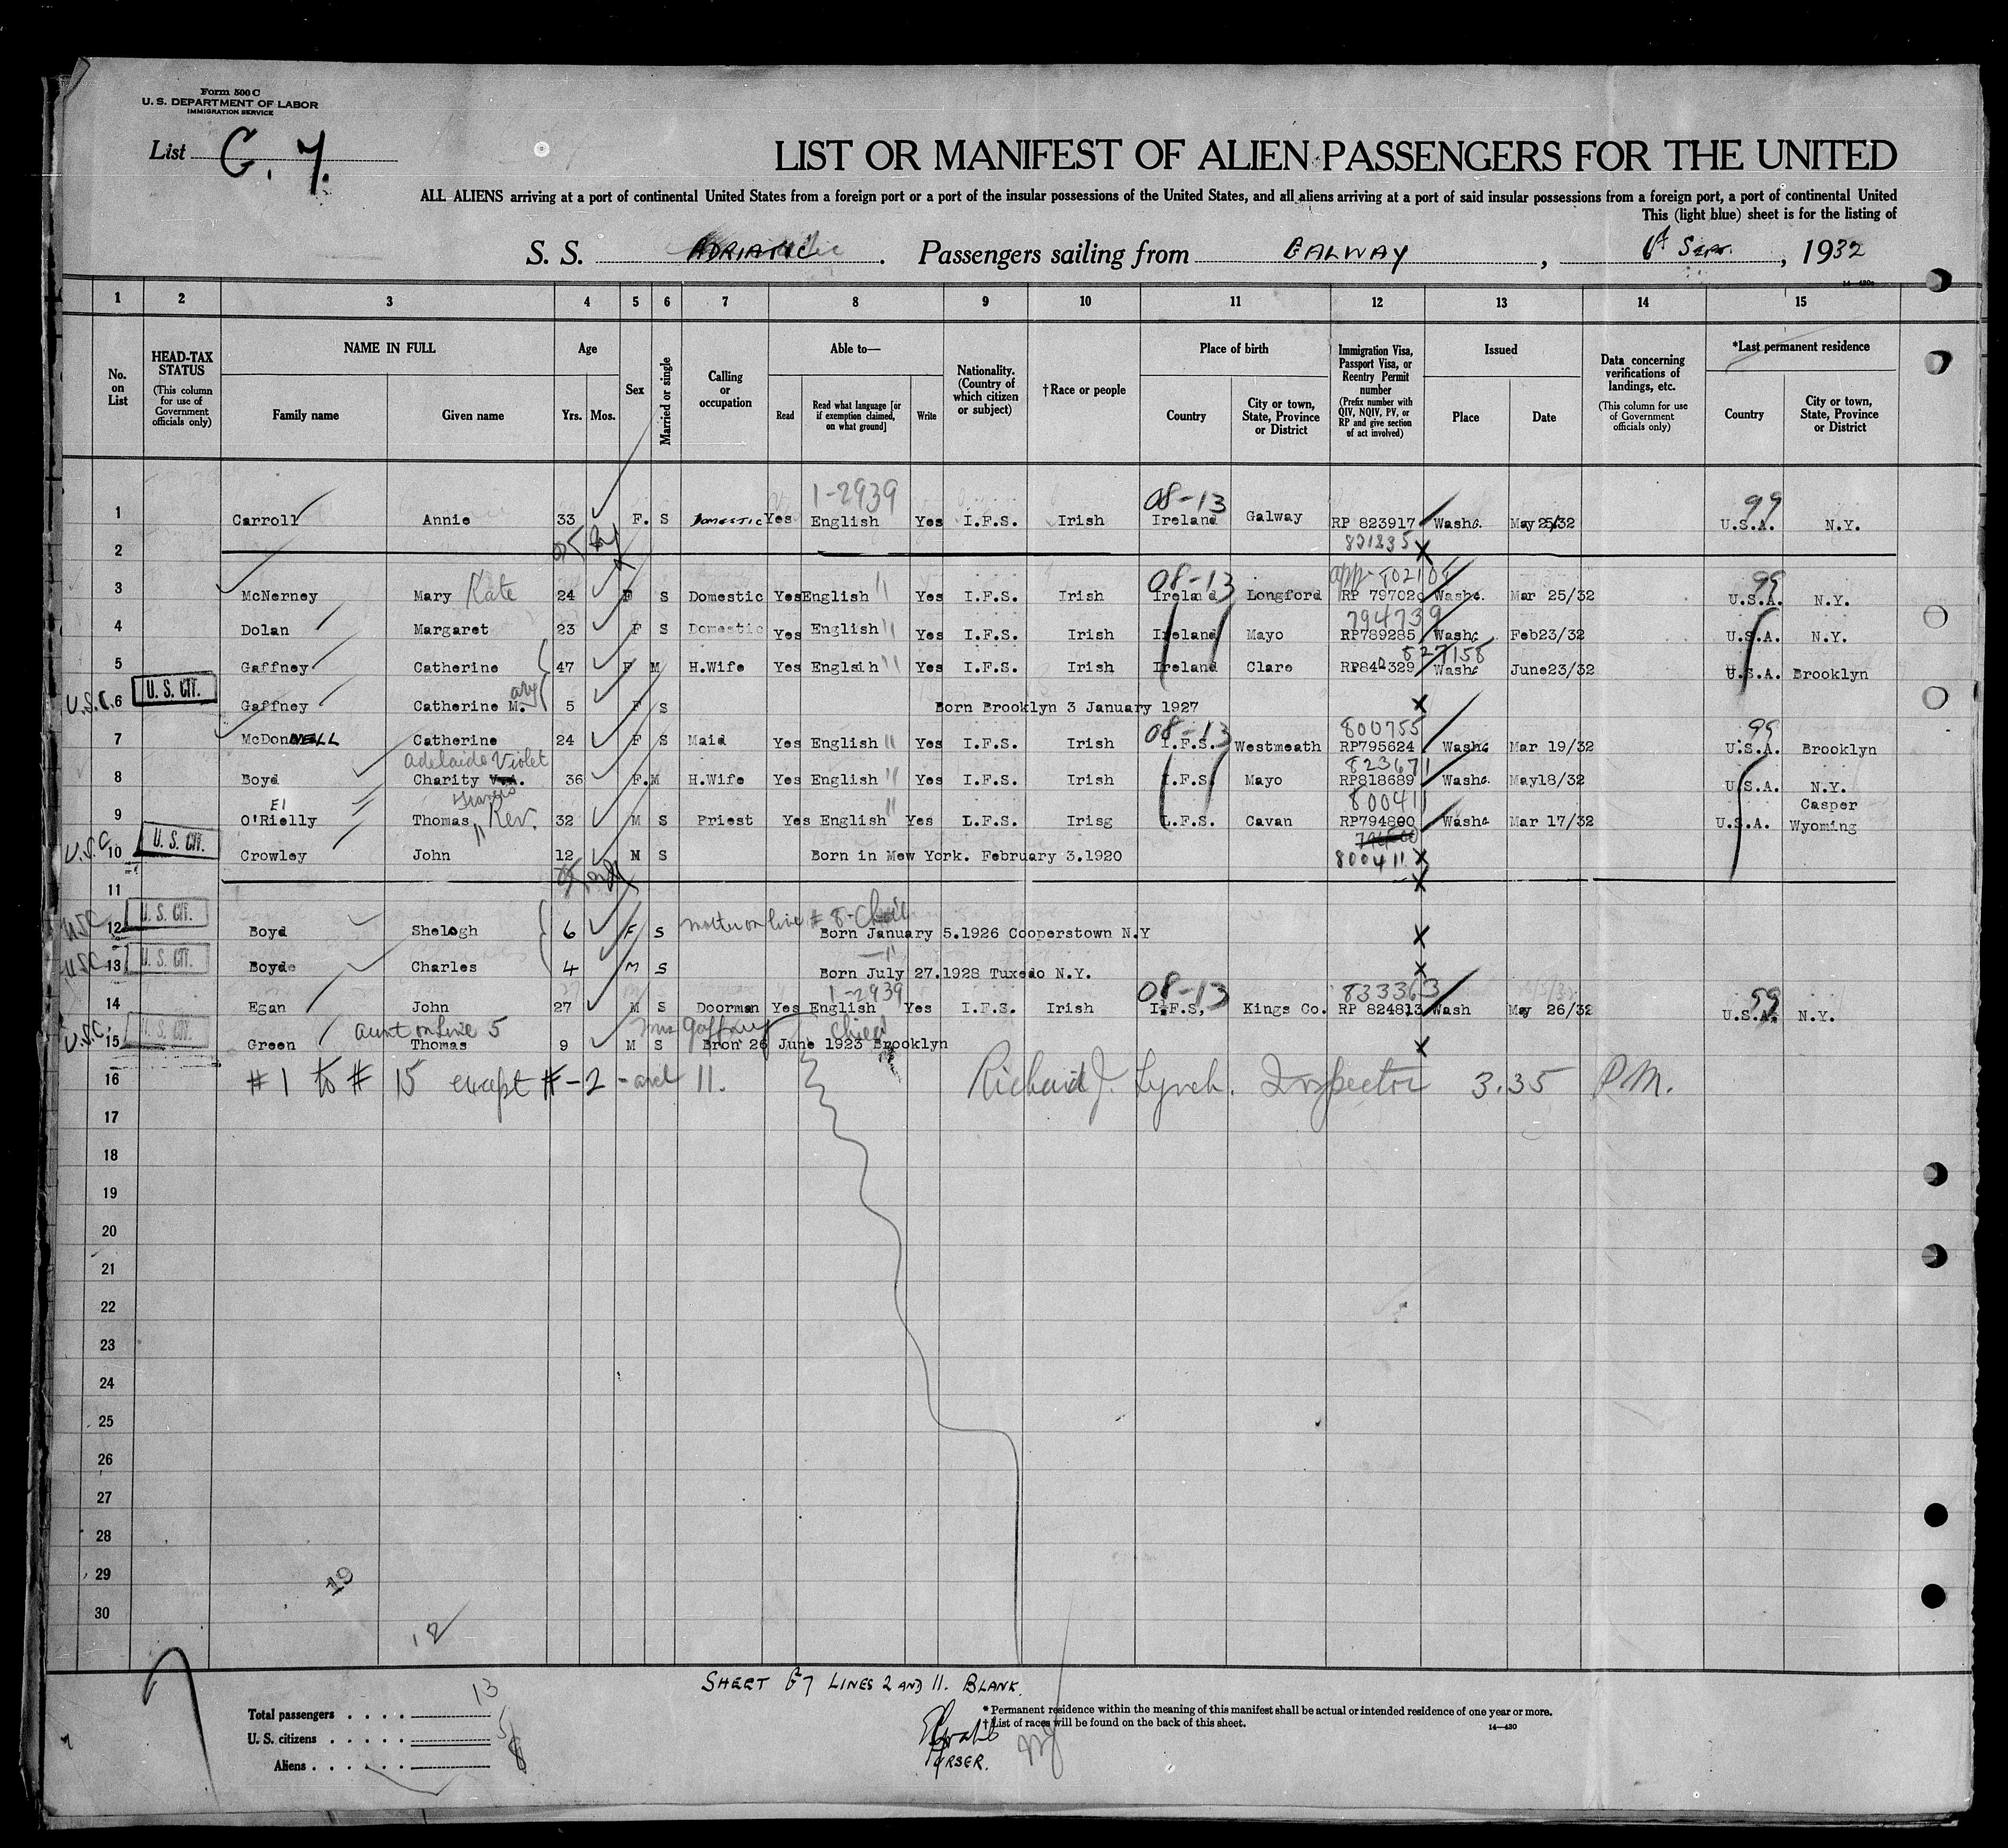 Form 500 C
U. S. DEPARTMENT OF LABOR
IMMIGRATION SERVICE
List G. 7.
LIST OR MANIFEST OF ALIEN PASSENGERS FOR THE UNITED
ALL ALIENS arriving at a port of continental United States from a foreign port or a port of the insular possessions of the United States, and all aliens arriving at a port of said insular possessions from a foreign port, a port of continental United
This (light blue) sheet is for the listing of
S. S. ADRIATIC. Passengers sailing from GALWAY, Sept., 1932
14—430c
1 2 3 4 5 6 7 8 9 10 11 12 13 14 15
No. on List
HEAD-TAX STATUS (This column for use of Government officials only)
NAME IN FULL Family name Given name
Age Yrs. Mos.
Sex
Married or single
Calling or occupation
Able to— Read Read what language [or if exemption claimed, on what ground] Write
Nationality. (Country of which citizen or subject)
†Race or people
Place of birth Country City or town, State, Province or District
Immigration Visa, Passport Visa, or Reentry Permit number (Prefix number with QIV, NQIV, PV, or RP and give section of act involved)
Issued Place Date
Data concerning verifications of landings, etc. (This column for use of Government officials only)
*Last permanent residence Country City or town, State, Province or District
1-2939 08-13 99
1 Carroll Annie 33 F. S DOMESTIC Yes English Yes I.F.S. Irish Ireland Galway RP 823917 Washc. May 25/32 U.S.A. N.Y.
2 821235 X
08-13 app- 802105 99
3 McNerney Mary Kate 24 F S Domestic Yes English " Yes I.F.S. Irish Ireland Longford RP 797020 Washc. Mar 25/32 U.S.A. N.Y.
794739
4 Dolan Margaret 23 F S Domestic Yes English " Yes I.F.S. Irish Ireland Mayo RP789285 Washc Feb23/32 U.S.A. N.Y.
827158
5 Gaffney Catherine 47 F M H.Wife Yes Englsih " Yes I.F.S. Irish Ireland Clare RP840329 Washc June23/32 U.S.A. Brooklyn
U.S.C. 6 U. S. CIT. Gaffney Catherine M.ary 5 F S Born Brooklyn 3 January 1927 X
08-13 800755 99
7 McDonNELL Catherine 24 F S Maid Yes English " Yes I.F.S. Irish I.F.S. Westmeath RP795624 Washc Mar 19/32 U.S.A. Brooklyn
Adelaide Violet 823671
8 Boyd Charity V.A. 36 F. M H.Wife Yes English " Yes I.F.S. Irish I.F.S. Mayo RP818689 Washc. May18/32 U.S.A. N.Y.
EI Francis 800411 Casper
9 O'Rielly Thomas " Rev. 32 M S Priest Yes English " Yes I.F.S. Irisg I.F.S. Cavan RP794800 Washc Mar 17/32 U.S.A. Wyoming
U.S.C 10 U. S. CIT. Crowley John 12 M S Born in Mew York. February 3.1920 800411 X
11 X
USC 12 U. S. CIT. Boyd Shelogh 6 F S mother on line # 8- Child Born January 5.1926 Cooperstown N.Y X
USC 13 U. S. CIT. Boyde Charles 4 M S —"— Born July 27.1928 Tuxedo N.Y. X
1-2939 08-13 833363 99
14 Egan John 27 M S Doorman Yes English Yes I.F.S. Irish I.F.S, Kings Co. RP 824813 Wash May 26/32 U.S.A. N.Y.
aunt on line 5 Mrs Gaffney Child
U.S.C. 15 U. S. CIT. Green Thomas 9 M S Bron 26 June 1923 Brooklyn X
16 #1 to # 15 except #-2 -and 11. Richard J. Lynch. Inspector 3.35 P.M.
17
18
19
20
21
22
23
24
25
26
27
28
29
30
19
12
SHEET G7 LINES 2 AND 11. BLANK.
Total passengers 13
U. S. citizens 5
Aliens 8
PURSER.
* Permanent residence within the meaning of this manifest shall be actual or intended residence of one year or more.
† List of races will be found on the back of this sheet.
14—430